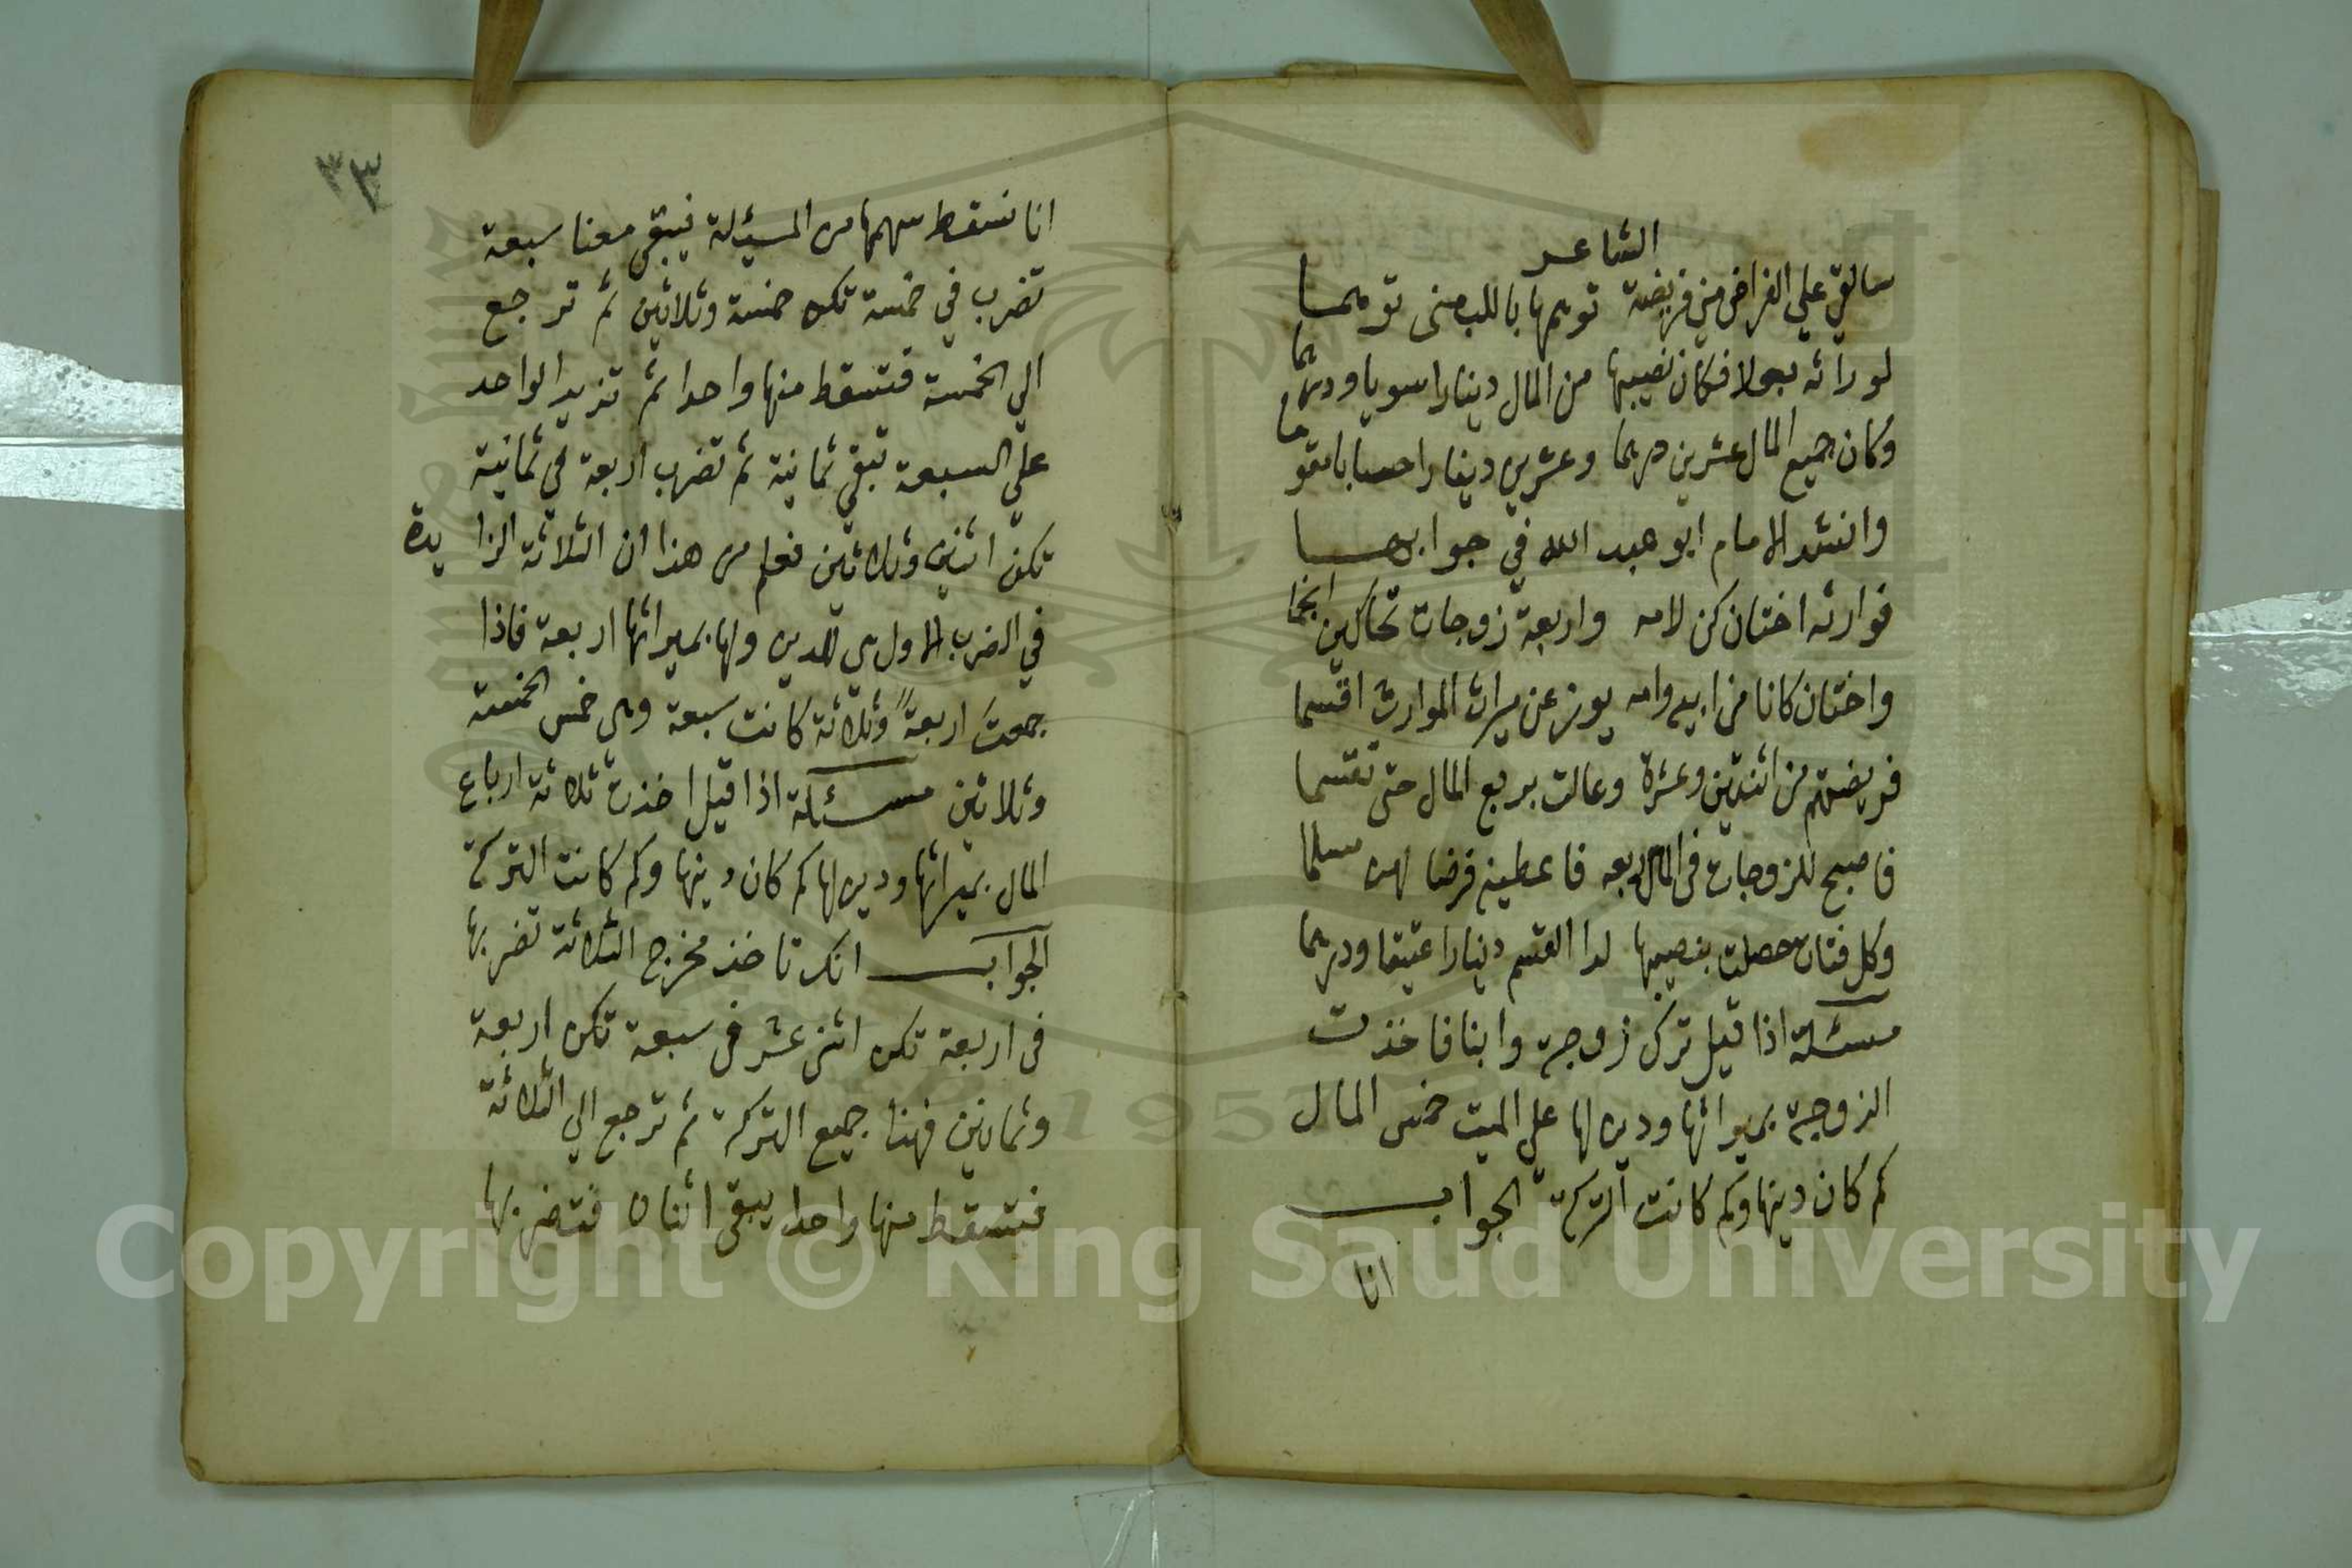 الشاعر
سالقي علي الفراض مني فريضة توهمها باللب مني توهما
لورائه بعولا فكان نصيبها من المال دينارا سويا ودرهما
وكان جميع المال عشرين درهما وعشرين دينارا حسابا مقوما
وانشد الامام ابو عبد الله في جوابها
فوارثه اختان كن لامه واربعة زوجات تحاكين انجما
واختان كانا من ابيه وامه يوز عن ميراث الموارث اقسما
فريضتهم من اثنتين وعشرة وعالت بربع المال حتى تقسما
فاصبح للزوجات في المال ربعه فاعطينه فرضا لهن مسلما
وكل فتات حصلت بنصيبها لدا القسم دينارا عتيقا ودرهما
مسئلة اذا قيل ترك زوجة وابنا فاخذت
الزوجة بميراثها ودين لها على الميت خمس المال
كم كان دينها وكم كانت التركة الجواب
انا
٣٣
انا نسقط سهمها من المسئلة فيبقى معنا سبعة
تضرب في خمسة تكن خمسة وثلاثين ثم ترجع
الي الخمسة فتسقط منها واحدا ثم تزيد الواحد
على السبعة تبقي ثمانية ثم تضرب اربعة في ثمانية
تكن اثنين وثلاثين فعلم من هذا ان الثلاثة الزايدة
في الضرب الاول هي للدين ولها بميراثها اربعة فاذا
جمعت اربعة وثلاثة كانت سبعة وهي خمس الخمسة
وثلاثين مسئلة اذا قيل اخذت ثلاثة ارباع
المال بميراثها ودين لها كم كان دينها وكم كانت التركة
الجواب انك تاخذ مخرج الثلاثة تضربها
في اربعة تكن اثني عشر في سبعة تكن اربعة
وثمانين فهنا جميع التركة ثم ترجع الي الثلاثة
فتسقط منها واحدا يبقى اثنان فتضربها
Copyright © King Saud University
1957